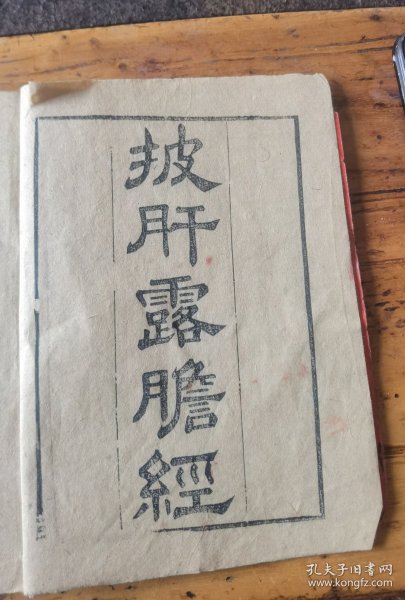 披肝露膽經
孔夫子旧书网
www.kongfz.com